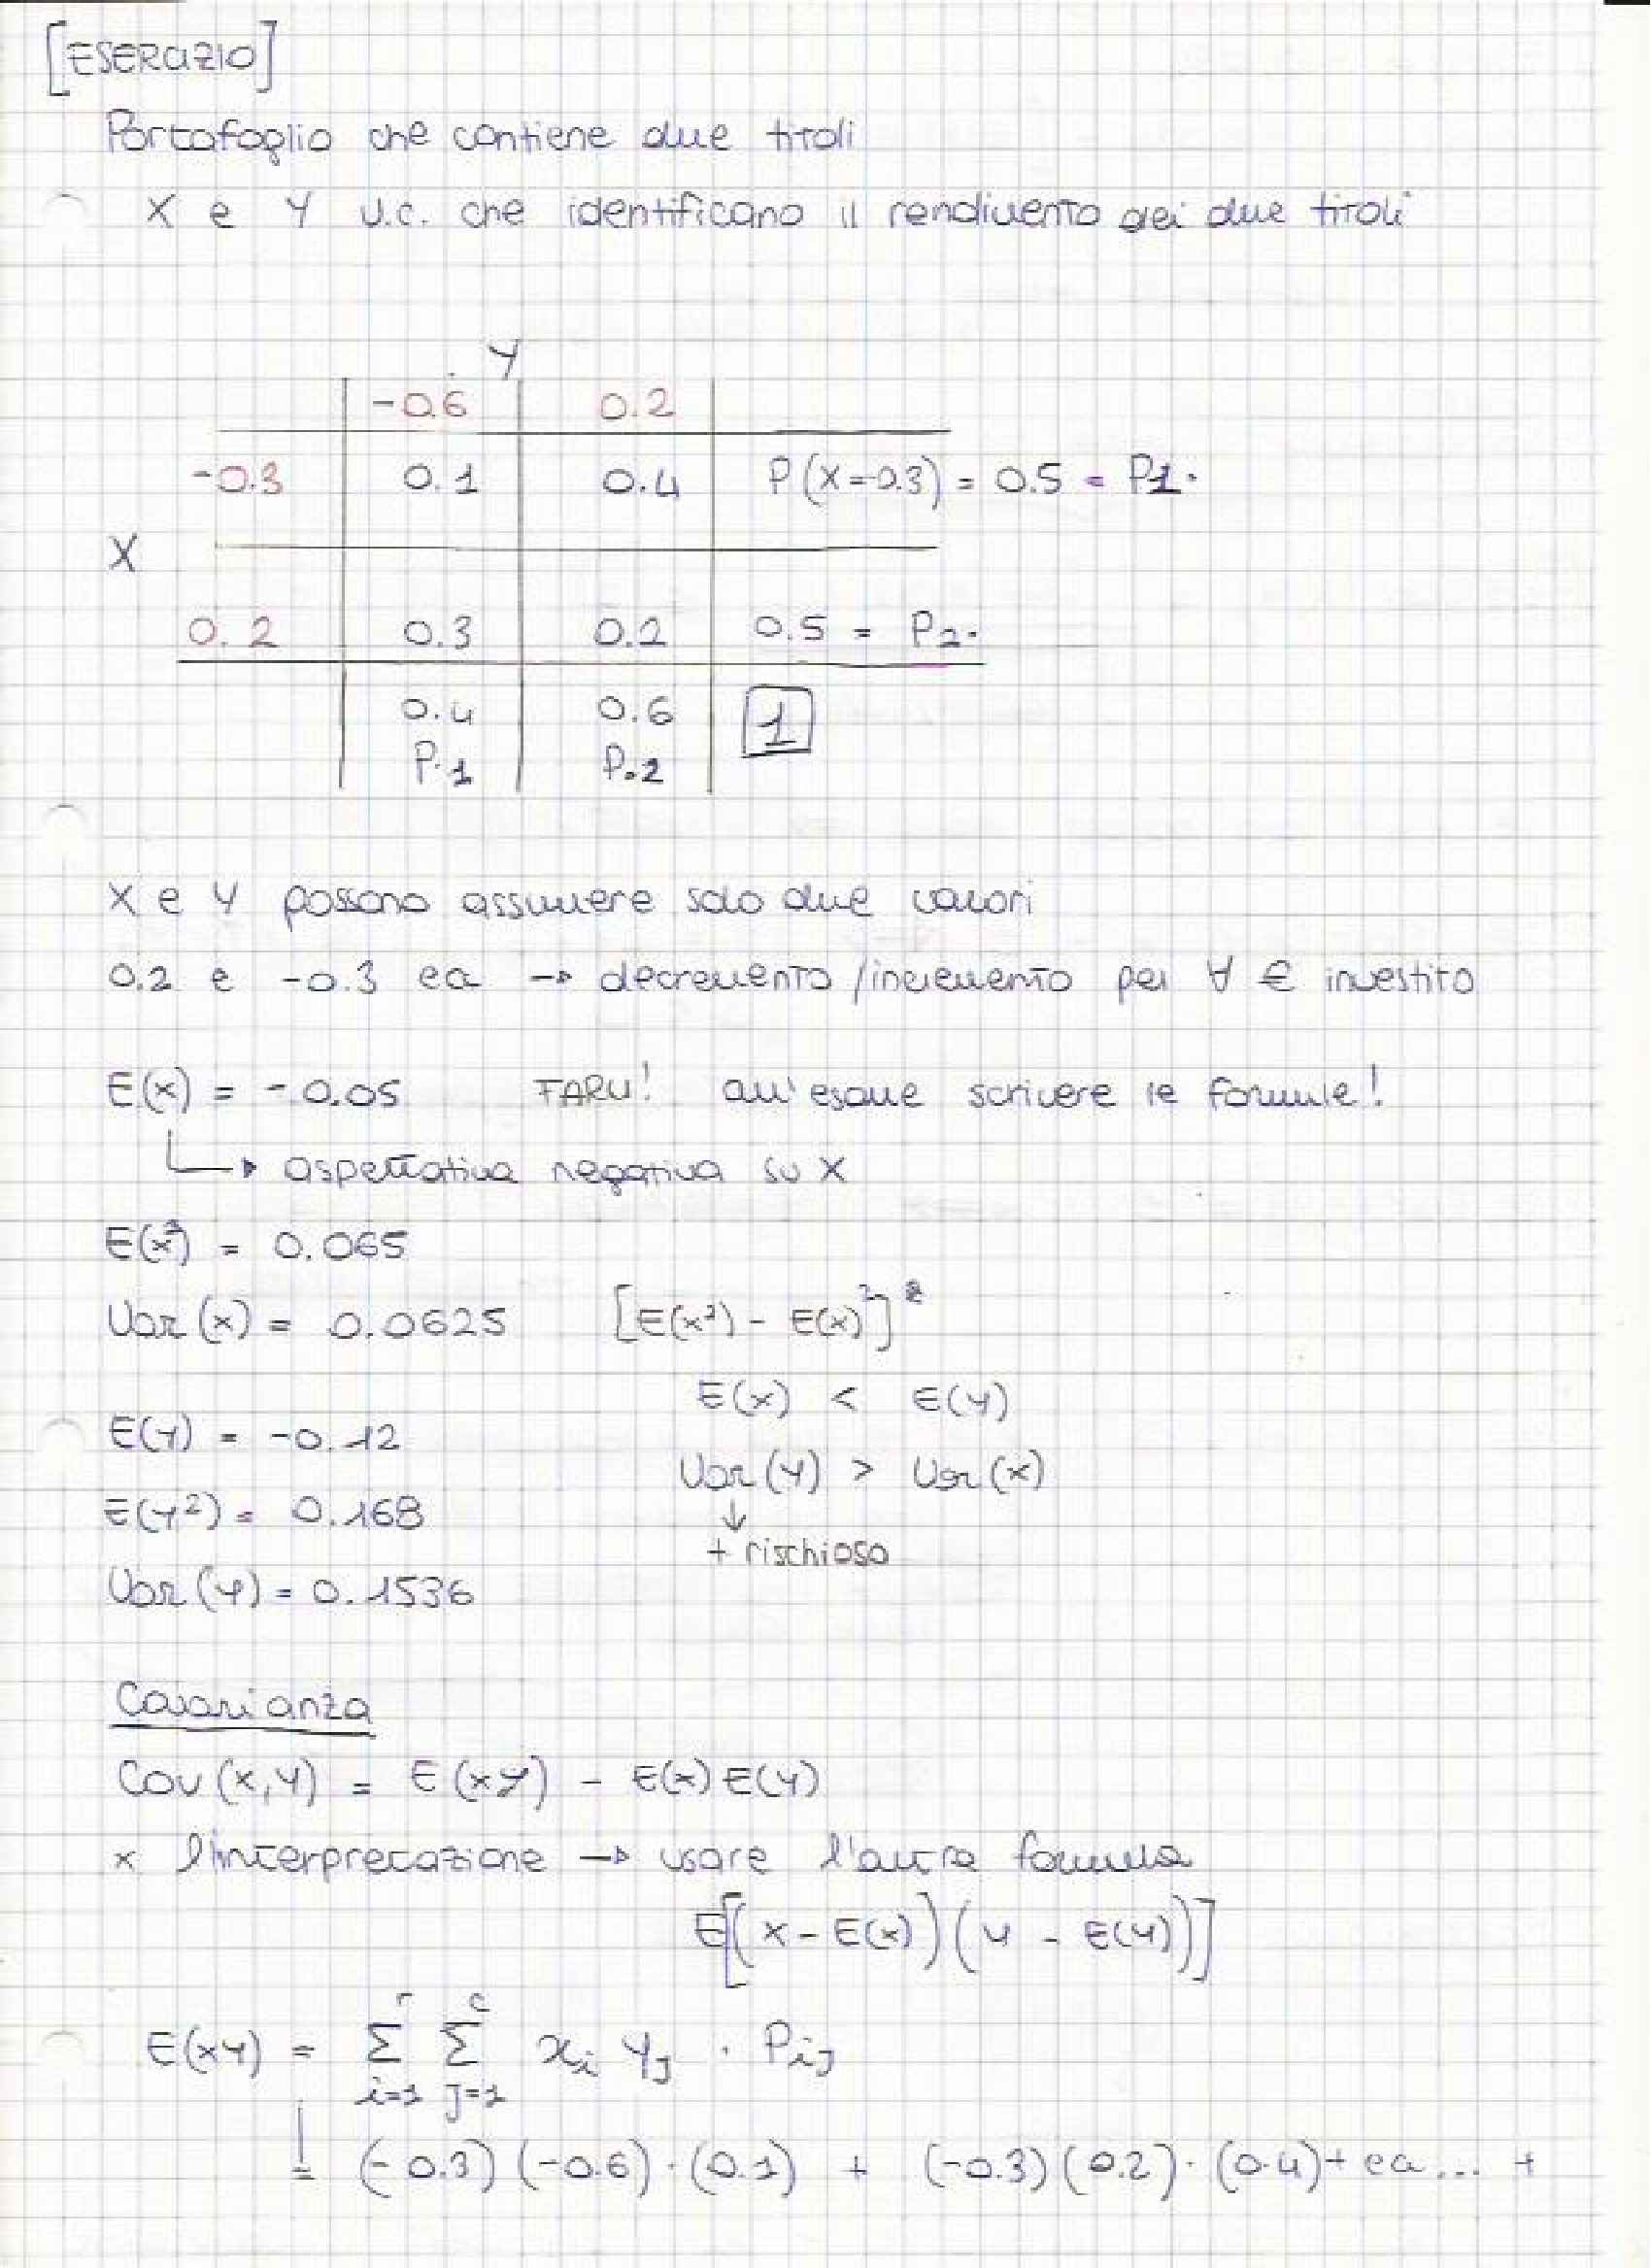 [ESERCIZIO]
Portafoglio che contiene due titoli
X e Y v.c. che identificano il rendimento dei due titoli
Y
-0.6 0.2
-0.3 0.1 0.4 P(X=-0.3) = 0.5 = P1.
X
0.2 0.3 0.2 0.5 = P2.
0.4 0.6 1
P.1 P.2
X e Y possono assumere solo due valori
0.2 e -0.3 ecc → decremento/incremento per ∀ € investito
E(x) = -0.05 FARLI! all'esame scrivere le formule!
↳ aspettativa negativa su X
E(x²) = 0.065
Var(x) = 0.0625 [E(x²) - E(x)²]
E(x) < E(Y)
E(Y) = -0.12
Var(Y) > Var(x)
E(Y²) = 0.168
↓
+ rischioso
Var(Y) = 0.1536
Covarianza
Cov(x,Y) = E(xY) - E(x)E(Y)
x l'interpretazione → usare l'altra formula
E[(x - E(x))(Y - E(Y))]
E(xY) = r∑i=1 c∑J=1 xi YJ · PiJ
= (-0.3)(-0.6)·(0.1) + (-0.3)(0.2)·(0.4) + ecc... +